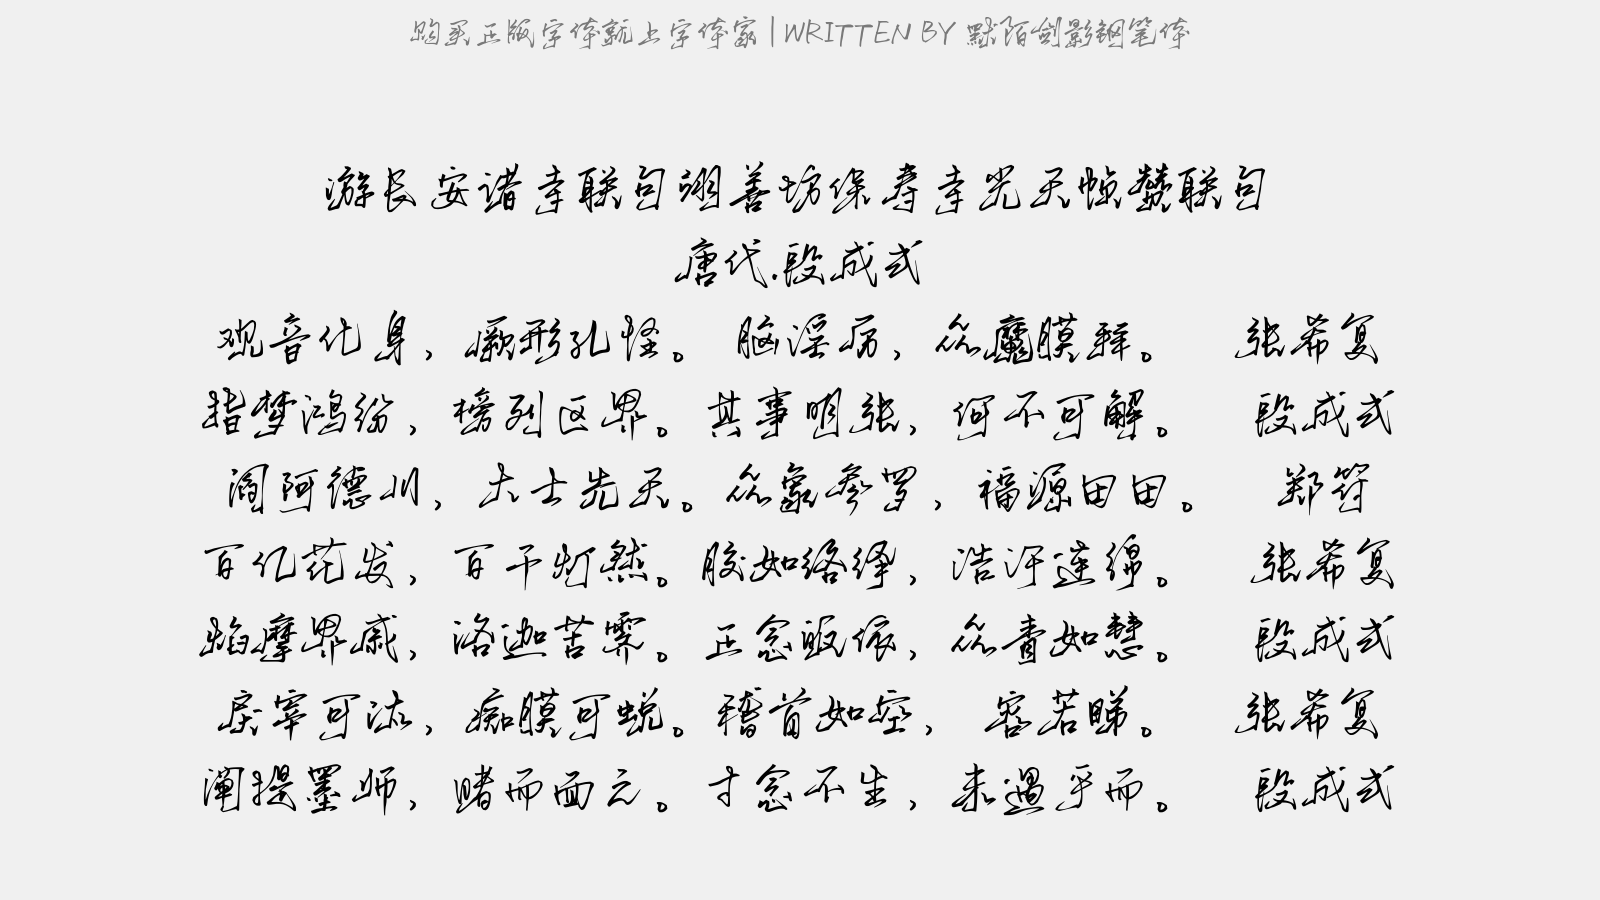 购买正版字体就上字体家 | WRITTEN BY 默陌剑影钢笔体
游长安诸寺联句翊善坊保寿寺光天帧赞联句
唐代.段成式
观音化身，厥形孔怪。 脑淫厉，众魔膜拜。 张希复
指梦鸿纷，榜列区界。其事明张，何不可解。 段成式
阎阿德川，大士先天。众象参罗，福源田田。 郑符
百亿花发，百千灯然。胶如络绎，浩汗连绵。 张希复
焰摩界戚，洛迦苦霁。正念皈依，众眚如彗。 段成式
戾宰可汰，痴膜可蜕。稽首如空， 容若睇。 张希复
阐提墨师，睹而面之。寸念不生，未遇乎而。 段成式